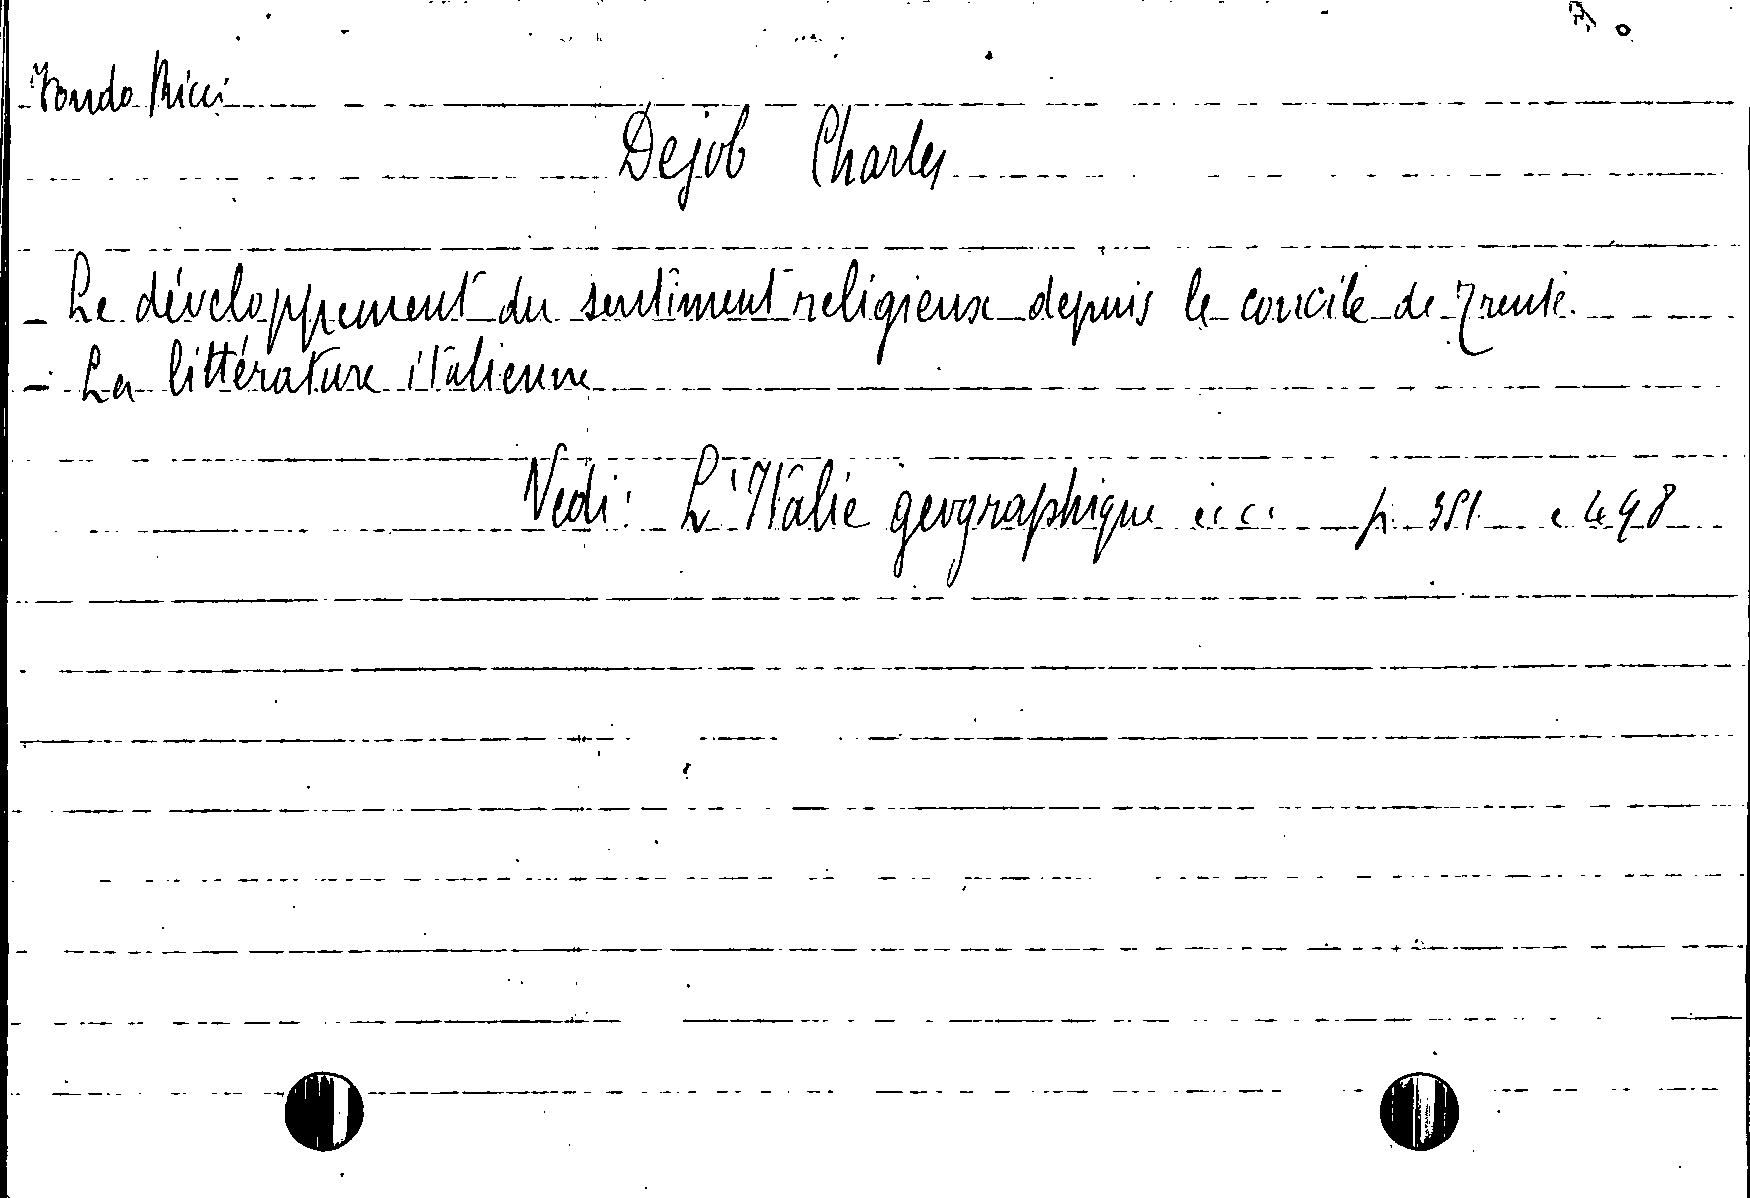 Fondo Ricci
Dejob Charles
- Le développement du sentiment religieux depuis le concile de Trente.
- La littérature italienne
Vedi: L'Italie geographique ecc. p. 381 e 498